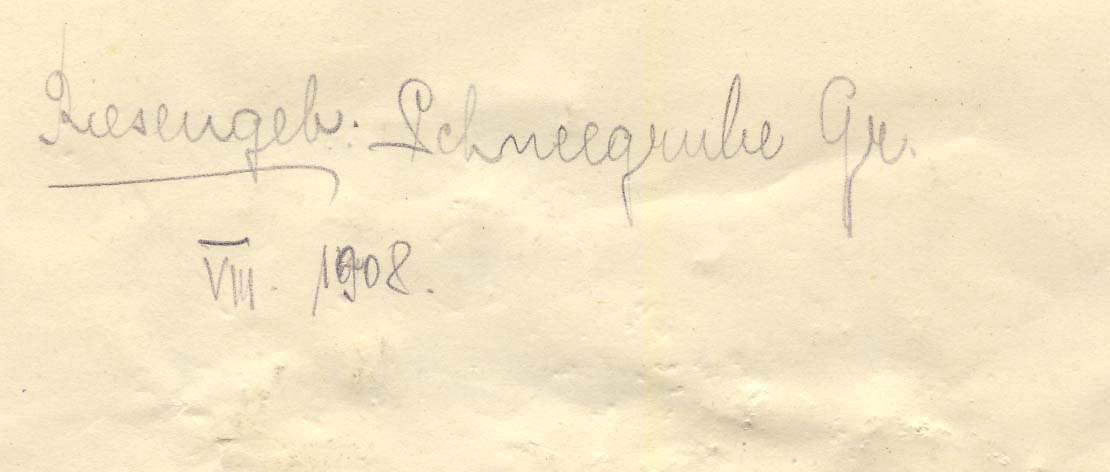 Riesengeb. Schneegrube Gr.
VIII. 1908.